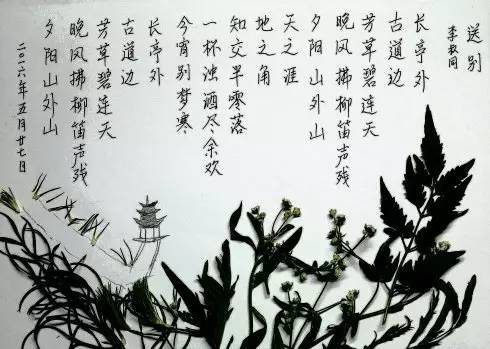 送别
李叔同
长亭外
古道边
芳草碧连天
晚风拂柳笛声残
夕阳山外山
天之涯
地之角
知交早零落
一杯浊酒尽余欢
今宵别梦寒
长亭外
古道边
芳草碧连天
晚风拂柳笛声残
夕阳山外山
二〇一六年五月廿七日